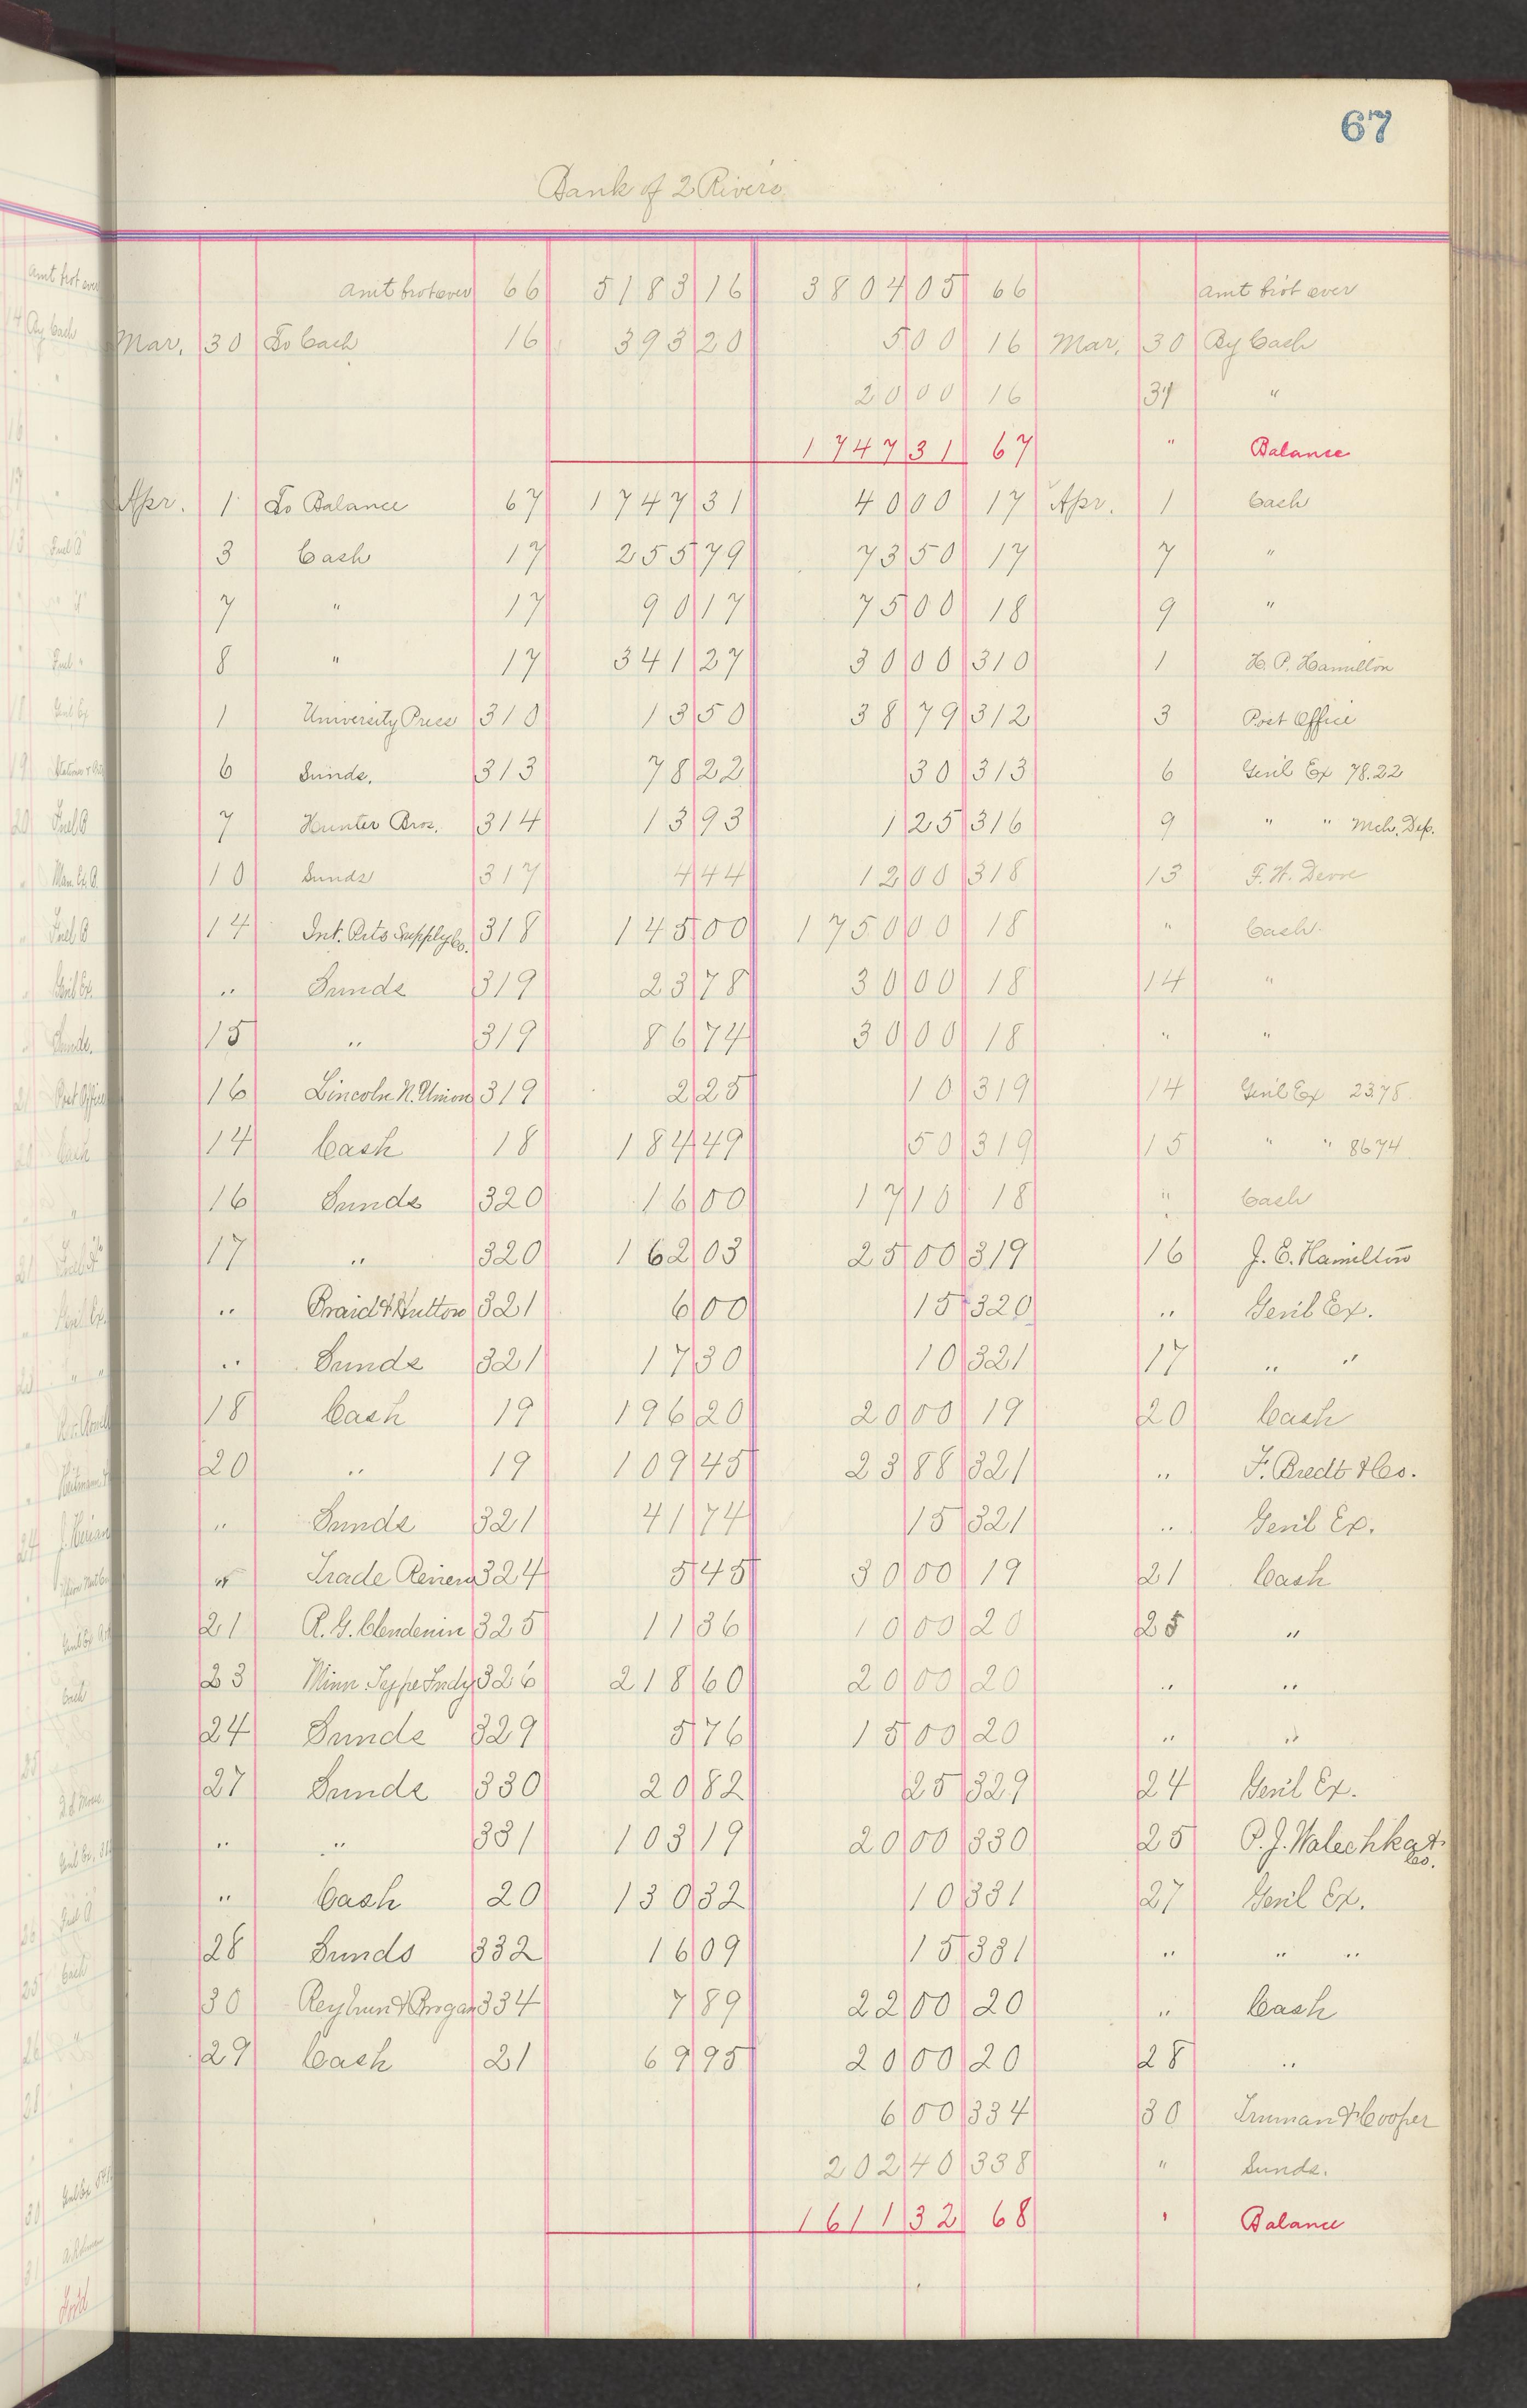 67
Bank of 2 Rivers
amt brot over 66 5183 16 3804 05 66 amt bro't over
Mar. 30 To Cash 16 393 20 5 00 16 Mar. 30 By Cash
20 00 16 31 "
1747 31 67 " Balance
Apr. 1 To Balance 67 1747 31 40 00 17 Apr. 1 Cash
3 Cash 17 255 79 73 50 17 7 "
7 " 17 90 17 75 00 18 9 "
8 " 17 341 27 30 00 310 1 H. P. Hamilton
1 University Press 310 13 50 38 79 312 3 Post Office
6 Sunds. 313 78 22 30 313 6 Gen'l Ex 78.22
7 Hunter Bros. 314 13 93 1 25 316 9 " " Mch. Dep.
10 Sunds 317 4 44 12 00 318 13 F. W. Devoe
14 Int. Arts Supply Co. 318 145 00 1750 00 18 " Cash
" Sunds 319 23 78 30 00 18 14 "
15 " 319 86 74 30 00 18 " "
16 Lincoln N. Union 319 2 25 10 319 14 Gen'l Ex 23.78
14 Cash 18 184 49 50 319 15 " " 86 74
16 Sunds 320 16 00 17 10 18 " Cash
17 " 320 162 03 25 00 319 16 J. E. Hamilton
" Braid & Hutton 321 6 00 15 320 " Gen'l Ex.
" Sunds 321 17 30 10 321 17 " "
18 Cash 19 196 20 20 00 19 20 Cash
20 " 19 109 45 23 88 321 " F. Bredt & Co.
" Sunds 321 41 74 15 321 " Gen'l Ex.
" Trade Review 324 5 45 30 00 19 21 Cash
21 R. G. Clendenin 325 11 36 10 00 20 25 "
23 Minn. Type Fndy 326 218 60 20 00 20 " "
24 Sunds 329 5 76 15 00 20 " "
27 Sunds 330 20 82 25 329 24 Gen'l Ex.
" " 331 103 19 20 00 330 25 P. J. Walechka & Co.
" Cash 20 130 32 10 331 27 Gen'l Ex.
28 Sunds 332 16 09 15 331 " " "
30 Reyburn & Brogan 334 7 89 22 00 20 " Cash
29 Cash 21 69 95 20 00 20 28 "
6 00 334 30 Truman & Cooper
202 40 338 " Sunds.
1611 32 68 " Balance